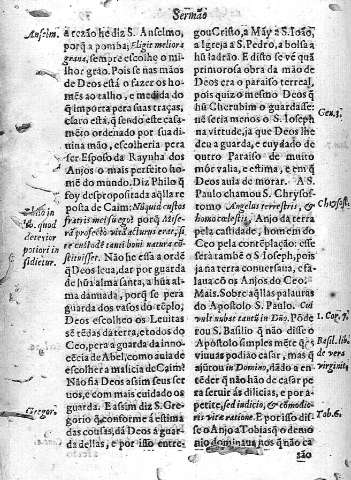 Sermão
Anselm.
a rezão he diz S. Anselmo,
porq̃ a pomba; Eligit meliora
grana, sempre escolhe o mi-
lhor grão. Pois se nas mãos
de Deos está o fazer os ho-
mẽs ao talho, e medida do
q̃ importa pera suas traças,
claro está, q̃ sendo este casa-
mẽto ordenado por sua di-
uina mão, escolheria pera
ser Esposo da Raynha dos
Anjos o mais perfeito ho-
mẽ do mundo. Diz Philo q̃
foy desproposita da aq̃lla re-
posta de Caim: Nũquid custos
fratris mei sũ ego? porq̃ Mise-
rè profectò vita acturus erat, si
te custodẽ tanti boni natura cõ-
stituisset. Não he essa a ordẽ
q̃ Deos leua, dar por guarda
de hũa alma santa, a hũa
alma danada, porq̃ se pera
guarda dos vasos do tẽplo,
Deos escolheo os Leuitas
da terra, e todos do
Ceo, pera a guarda da inno-
cẽcia de Abel, como auia de
escolher a malicia de Caim?
Não fia Deos assim seus ser
uos, e com mais cuidado os
guarda. E assim diz S. Gre-
gorio q̃ conforme á estima
das cousas, dá Deos á guar-
da dellas, e por isso entre-
Philo in
lib. quod
deterior
potiori in
sidietur.
Gregor.
gou Cristo, a Mãy a S. Ioão,
a Igreja a S. Pedro, a bolsa a
hũ ladrão. E disto se vé quã
primorosa obra da mão de
Deos era o paraiso terreal,
pois quiz o mesmo Deos q̃
hũ Cherubim o guardasse:
nẽ seria menos o S. Ioseph
na virtude, ja que Deos lhe
deu a guarda, e cuydado de
outro Paraiso de muito
mór valia, e estima, e em q̃
Deos auia de morar. A S.
Paulo chamou S. Chrysos-
tomo Angelus terrestris, &
homo cœlestis, Anjo da terra
pela castidade, homem do
Ceo pela contẽplação: esse
será tãbem o S. Ioseph, pois
ja na terra conuersaua, e fa-
laua cõ os Anjos do Ceo:
Mais. Sobre aq̃llas palauras
do Apostolo S. Paulo. Cui
vult nubat tantũ in Dño. Põde
rou S. Basilio q̃ não disse o
Apostolo simples mẽte q̃ a
viuuas podião casar, mas q̃
ajutou in Domino, dãdo a en-
tẽder q̃ não hão de casar pe
ra seruir ás delicias, e por a-
petite, sed indicio, & cõmodio-
ris vitæ ratione. E por isso dis-
se o Anjo a Tobias q̃ o demo
nio dominaua nos q̃ não ca
são
Gen. 3.
Chrysost.
1. Cog. 7.
Basil. lib.
de vera
virginit.
Tob. 6.